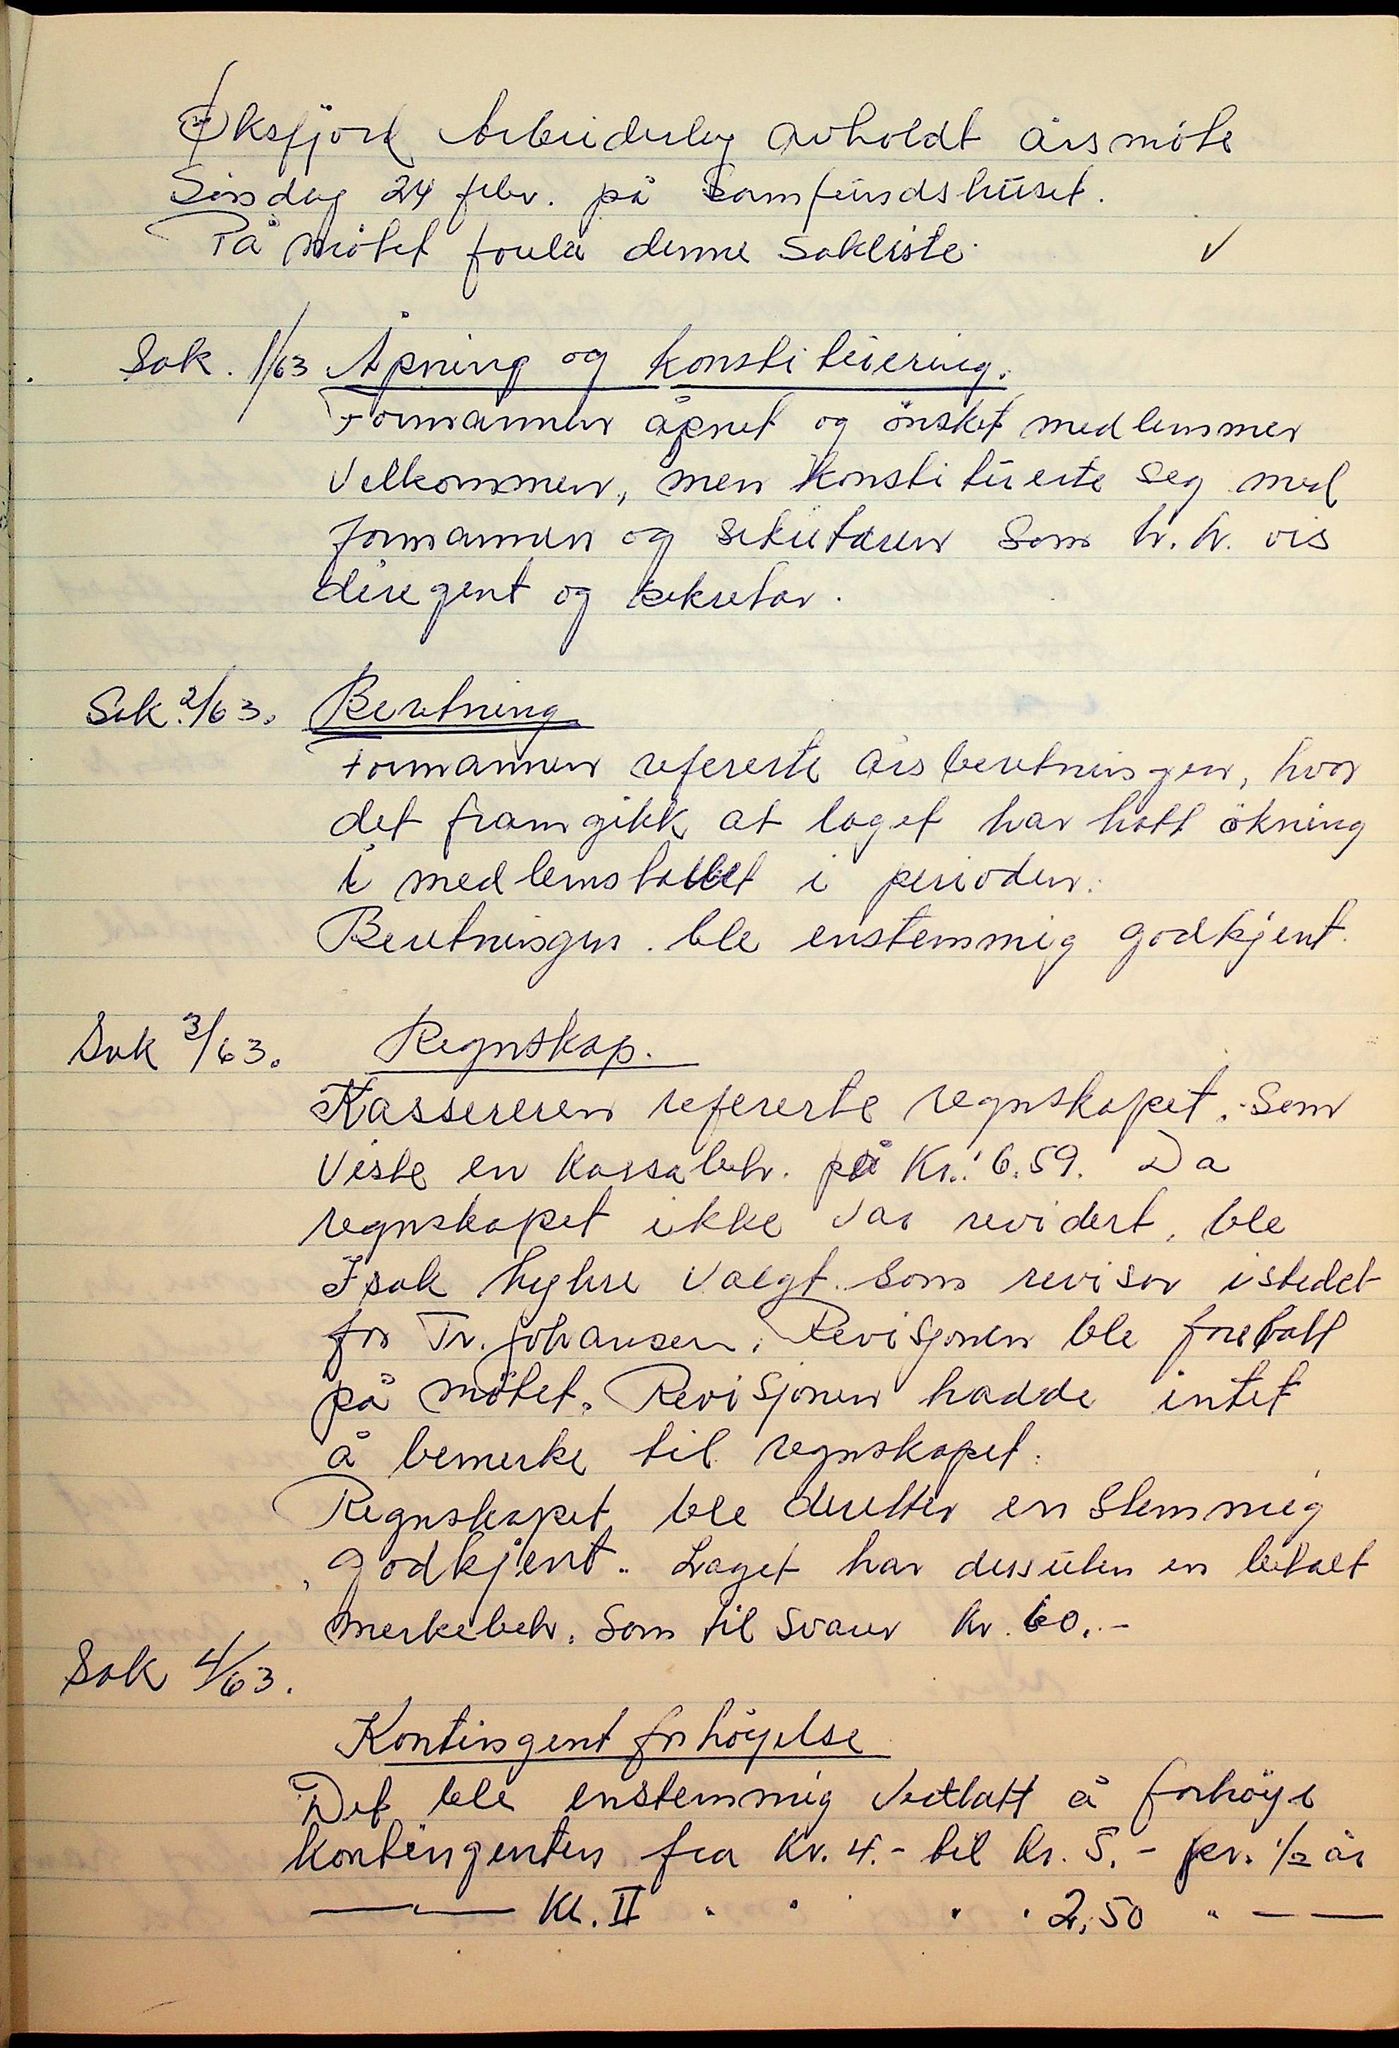 Øksfjord Arbeiderlag avholdt årsmöte
Söndag 24 febr. på Samfundshuset.
På mötet forelå denne sakliste. ✓
Sak. 1/63 Åpning og konstituering.
Formannen åpnet og önsket medlemmer
Velkommen, men konstituerte seg med
formannen og sekretæren som h.h. vis
diregent og sekretær.
Sak. 2/63. Beretning
Formannen refererte årsberetningen, hvor
det framgikk at laget har hatt ökning
i medlemstallet i perioden.
Beretningen ble enstemmig godkjent.
Sak 3/63. Regnskap.
Kassereren refererte regnskapet. Som
Viste en kassabeh. på Kr.: 6.59. Da
regnskapet ikke var revidert, ble
Isak valgt som revisor istedet
for Tr. Johansen. Revisjonen ble foretatt
på mötet. Revisjonen hadde intet
å bemerke til regnskapet.
Regnskapet ble deretter enstemmig
godkjent. Laget har dessuten en betalt
merkebeh. Som til svarer kr. 60.-
Sak 4/63.
Kontingent forhöyelse
Det ble enstemmig Vedtatt å forhöye
kontingenten fra Kr. 4.- til kr. 5.- pr. 1/2 år
—„— Kl. II " " " " 2,50 " — —